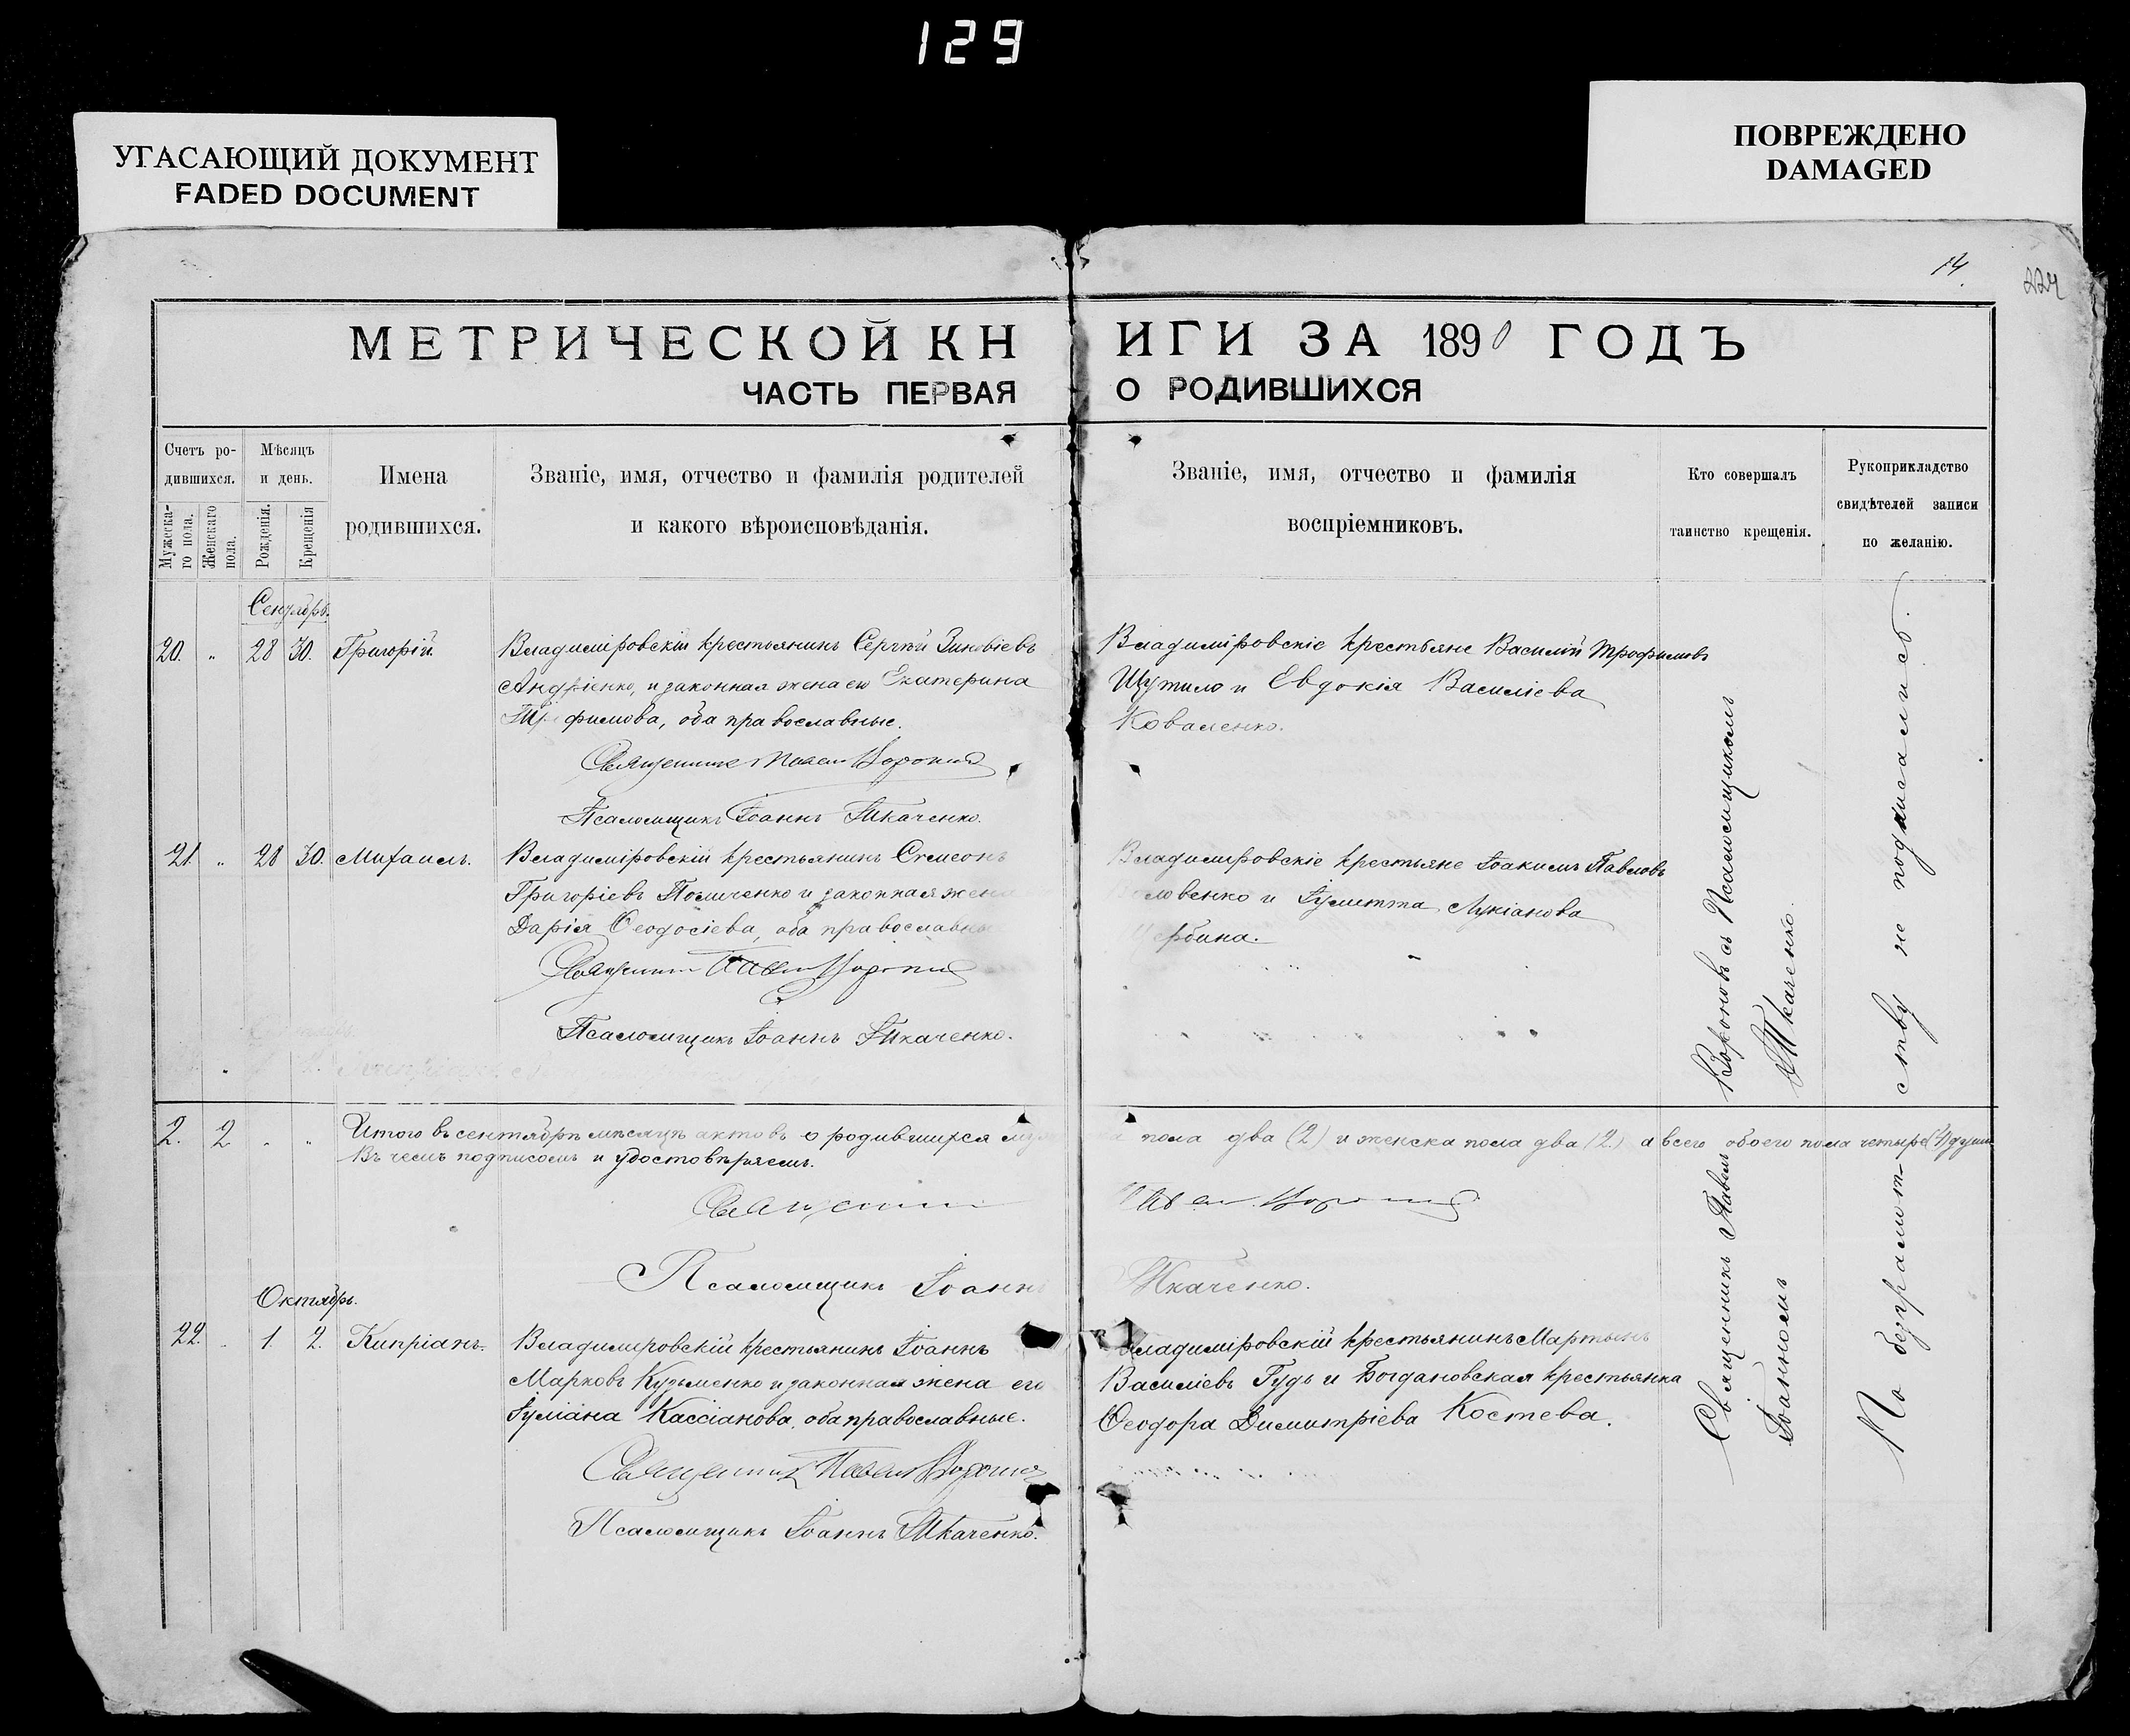 129
УГАСАЮЩИЙ ДОКУМЕНТ
FADED DOCUMENT
ПОВРЕЖДЕНО
DAMAGED
14.
224
МЕТРИЧЕСКОЙ КНИГИ ЗА 1890 ГОДЪ
ЧАСТЬ ПЕРВАЯ О РОДИВШИХСЯ
Счетъ ро-
дившихся.
Мужеска-
го пола.
Женскаго
пола.
Мѣсяцъ
и день.
Рожденія.
Крещенія
Имена
родившихся.
Званіе, имя, отчество и фамилія родителей
и какого вѣроисповѣданія.
Званіе, имя, отчество и фамилія
воспріемниковъ.
Кто совершалъ
таинство крещенія.
Рукоприкладство
свидѣтелей записи
по желанію.
Сентябрь.
20. „ 28 30. Григорій.
Владиміровскій крестьянинъ Сергѣй Зиновіевъ
Андріенко, и законная жена его Екатерина
Трофимова, оба православные.
Священникъ Павелъ Вороновъ
Псаломщикъ Іоаннъ Ткаченко.
Владиміровскіе крестьяне Василій Трофимовъ
Шутило и Евдокія Василіева
Коваленко.
21. „ 28 30. Михаилъ.
Владиміровскій крестьянинъ Симеонъ
Григоріевъ Помченко и законная жена
Дарія Ѳеодосіева, оба православные
Священникъ Павелъ Вороновъ
Псаломщикъ Іоаннъ Ткаченко.
Владиміровскіе крестьяне Іоакимъ Павловъ
ловенко и Іулитта Лукіанова
Щербина.
2. 2 „ „ Итого въ сентябрѣ мѣсяцѣ актовъ о родившихся мужска пола два (2) и женска пола два (2.) а всего обоего пола четыре (4) души
Въ чемъ подписомъ и удостовѣряемъ.
Священникъ Павелъ Вороновъ
Псаломщикъ Іоаннъ Ткаченко.
Октябрь.
22. „ 1. 2. Кипріанъ.
Владиміровскій крестьянинъ Іоаннъ
Марковъ Кузьменко и законная жена его
Іуліана Кассіанова, оба православные.
Священникъ Павелъ Вороновъ
Псаломщикъ Іоаннъ Ткаченко.
Владиміровскій крестьянинъ Мартынъ
Василіевъ Гудь и Богдановская крестьянка
Ѳеодора Димитріева Костева.
Священникъ Павелъ Вороновъ съ Псаломщикомъ
Іоанномъ Ткаченко.
По безграмотству не подписались.